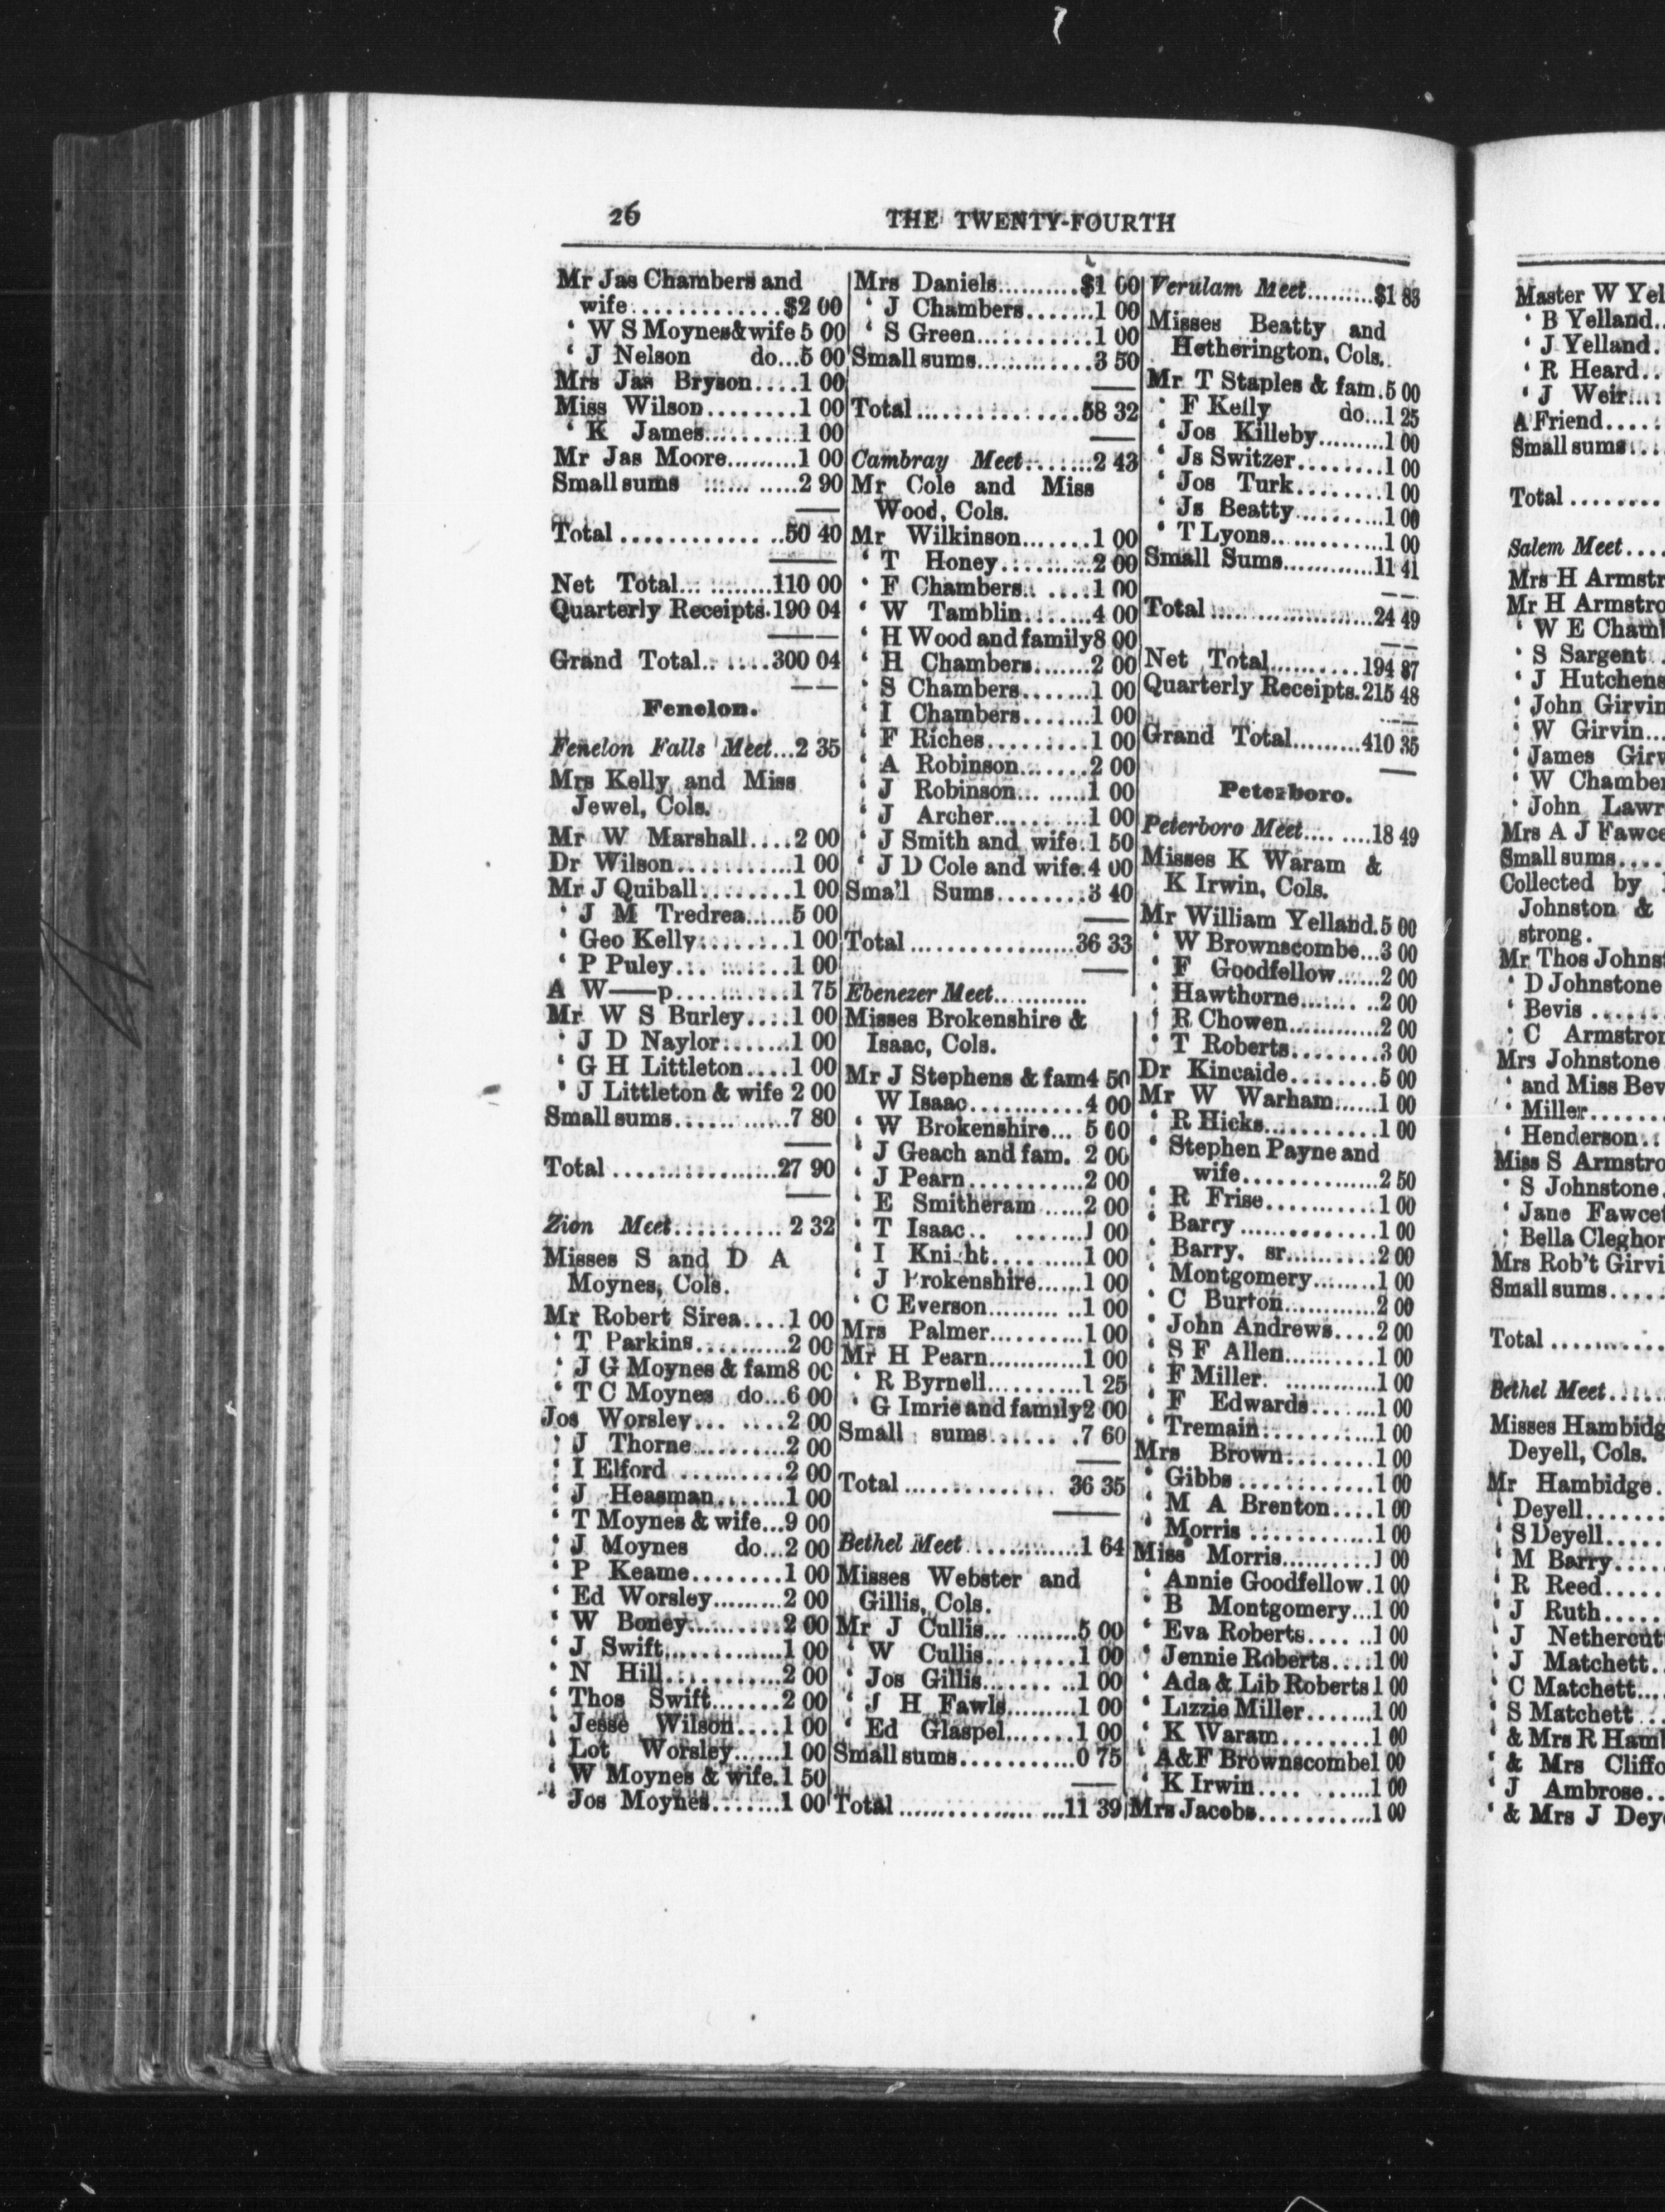 26
THE TWENTY-FOURTH
Mr Jas Chambers and
wife..............$2 00
‘ W S Moynes&wife 5 00
‘ J Nelson do...5 00
Mrs Jas Bryson....1 00
Miss Wilson.........1 00
‘ K James..........1 00
Mr Jas Moore.........1 00
Small sums ...... .....2 90
Total ............ ..50 40
Net Total.. .........110 00
Quarterly Receipts.190 04
Grand Total.. .....300 04
Fenelon.
Fenelon Falls Meet...2 35
Mrs Kelly and Miss
Jewel, Cols.
Mr W Marshall....2 00
Dr Wilson............1 00
Mr J Quiball.........1 00
‘ J M Tredrea......5 00
‘ Geo Kelly.........1 00
‘ P Puley... .......1 00
A W——p............1 75
Mr W S Burley....1 00
‘ J D Naylor.......1 00
‘ G H Littleton....1 00
‘ J Littleton & wife 2 00
Small sums...... ......7 80
Total .................27 90
Zion Meet........... 2 32
Misses S and D A
Moynes, Cols.
Mr Robert Sirea....1 00
‘ T Parkins..........2 00
‘ J G Moynes & fam8 00
‘ T C Moynes do...6 00
Jos Worsley... .....2 00
‘ J Thorne..........2 00
‘ I Elford ..........2 00
‘ J Heasman........1 00
‘ T Moynes & wife...9 00
‘ J Moynes do...2 00
‘ P Keame.........1 00
‘ Ed Worsley.........2 00
‘ W Boney..........2 00
‘ J Swift.............1 00
‘ N Hill............2 00
‘ Thos Swift.......2 00
‘ Jesse Wilson....1 00
‘ Lot Worsley......1 00
‘ W Moynes & wife.1 50
‘ Jos Moynes.......1 00
Mrs Daniels..........$1 00
‘ J Chambers.......1 00
‘ S Green............1 00
Small sums.............3 50
Total ..................58 32
Cambray Meet.......2 43
Mr Cole and Miss
Wood, Cols.
Mr Wilkinson.......1 00
‘ T Honey..........2 00
‘ F Chambers.. .....1 00
‘ W Tamblin.......4 00
‘ H Wood and family8 00
‘ H Chambers.......2 00
‘ S Chambers.......1 00
‘ I Chambers.......1 00
‘ F Riches..........1 00
‘ A Robinson.......2 00
‘ J Robinson... .....1 00
‘ J Archer..... ....1 00
‘ J Smith and wife.1 50
‘ J D Cole and wife.4 00
Small Sums.........3 40
Total ..................36 33
Ebenezer Meet............
Misses Brokenshire &
Isaac, Cols.
Mr J Stephens & fam4 50
W Isaac............4 00
‘ W Brokenshire... 5 00
‘ J Geach and fam. 2 00
‘ J Pearn............2 00
‘ E Smitheram .....2 00
‘ T Isaac.. .......1 00
‘ I Knight..........1 00
‘ J Brokenshire......1 00
‘ C Everson......... ..1 00
Mrs Palmer..........1 00
Mr H Pearn............1 00
‘ R Byrnell..........1 25
‘ G Imrie and family2 00
Small sums...... .7 60
Total ................ 36 35
Bethel Meet ............1 64
Misses Webster and
Gillis, Cols.
Mr J Cullis... .........5 00
‘ W Cullis.........1 00
‘ Jos Gillis....... ..1 00
‘ J H Fawls.........1 00
‘ Ed Glaspel.......1 00
Small sums............0 75
Total ............... ...11 39
Verulam Meet.........$1 83
Misses Beatty and
Hetherington, Cols.
Mr T Staples & fam.5 00
‘ F Kelly do...1 25
‘ Jos Killeby.........1 00
‘ Js Switzer.........1 00
‘ Jos Turk.........1 00
‘ Js Beatty..........1 00
‘ T Lyons.............1 00
Small Sums............11 41
Total ...................24 49
Net Total..........194 87
Quarterly Receipts.215 48
Grand Total.........410 35
Peterboro.
Peterboro Meet.... ....18 49
Misses K Waram &
K Irwin, Cols.
Mr William Yelland.5 00
‘ W Brownscombe...3 00
‘ F Goodfellow......2 00
‘ Hawthorne...... ..2 00
‘ R Chowen............2 00
‘ T Roberts.........3 00
Dr Kincaide.........5 00
Mr W Warham......1 00
‘ R Hicks............1 00
‘ Stephen Payne and
wife...............2 50
‘ R Frise............1 00
‘ Barry ...............1 00
‘ Barry, sr..........2 00
‘ Montgomery........1 00
‘ C Burton............2 00
‘ John Andrews....2 00
‘ S F Allen..........1 00
‘ F Miller. ............1 00
‘ F Edwards.......1 00
‘ Tremain............1 00
Mrs Brown..........1 00
‘ Gibbs ..............1 00
‘ M A Brenton....1 00
‘ Morris .............1 00
Miss Morris..........1 00
‘ Annie Goodfellow.1 00
‘ B Montgomery...1 00
‘ Eva Roberts.... ..1 00
‘ Jennie Roberts....1 00
‘ Ada & Lib Roberts 1 00
‘ Lizzie Miller.......1 00
‘ K Waram.........1 00
‘ A&F Brownscombe1 00
‘ K Irwin.... ......1 00
Mrs Jacobs............1 00
Master W Yel
‘ B Yelland..
‘ J Yelland.
‘ R Heard..
‘ J Weir....
A Friend.....
Small sums...
Total ........
Salem Meet....
Mrs H Armstr
Mr H Armstro
‘ W E Chaml
‘ S Sargent .
‘ J Hutchens
‘ John Girvin
‘ W Girvin...
‘ James Girv
‘ W Chamber
‘ John Lawr
Mrs A J Fawce
Small sums....
Collected by
Johnston &
strong.
Mr Thos Johnst
‘ D Johnstone
‘ Bevis ......
‘ C Armstron
Mrs Johnstone
‘ and Miss Bev
‘ Miller.......
‘ Henderson..
Miss S Armstro
‘ S Johnstone.
‘ Jane Fawcet
‘ Bella Cleghor
Mrs Rob't Girvi
Small sums.....
Total ..........
Bethel Meet.....
Misses Hambidg
Deyell, Cols.
Mr Hambidge.
‘ Deyell.......
‘ S Deyell.....
‘ M Barry....
‘ R Reed......
‘ J Ruth.....
‘ J Nethercut
‘ J Matchett..
‘ C Matchett...
‘ S Matchett ..
‘ & Mrs R Haml
‘ & Mrs Cliffo
‘ J Ambrose..
‘ & Mrs J Dey